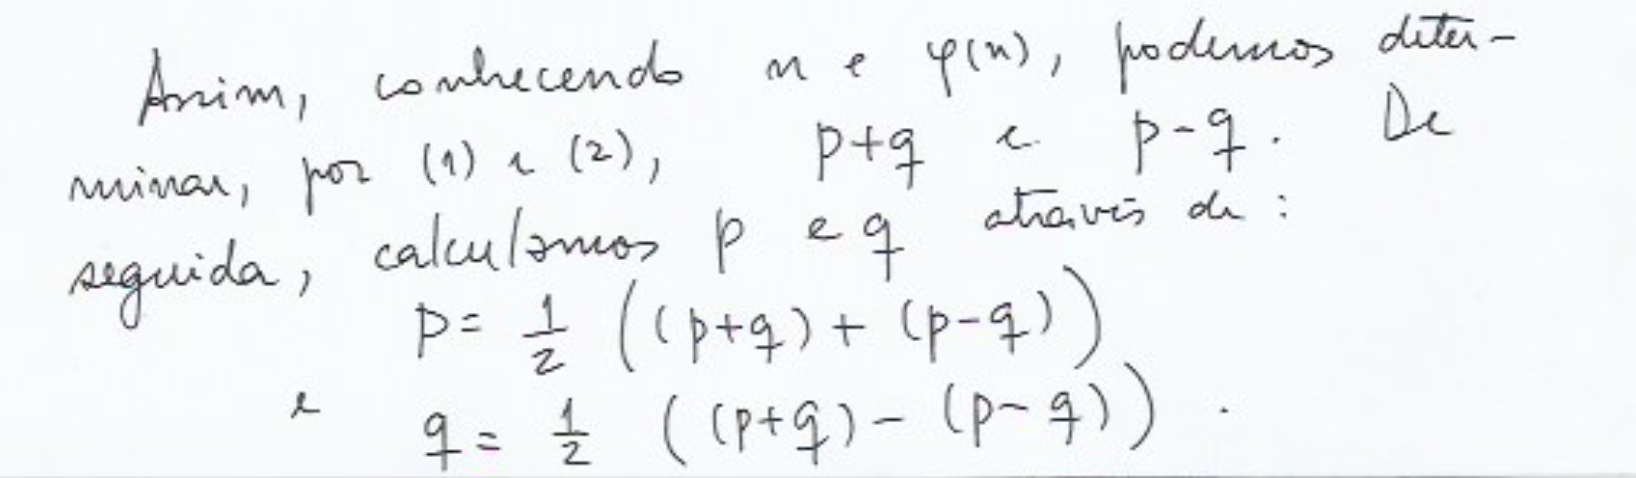 Assim, conhecendo n e φ(n), podemos deter-
minar, por (1) e (2), p+q e p-q. De
seguida, calculamos p e q através de:
p = 1/2 ((p+q) + (p-q))
e q = 1/2 ((p+q) - (p-q)).